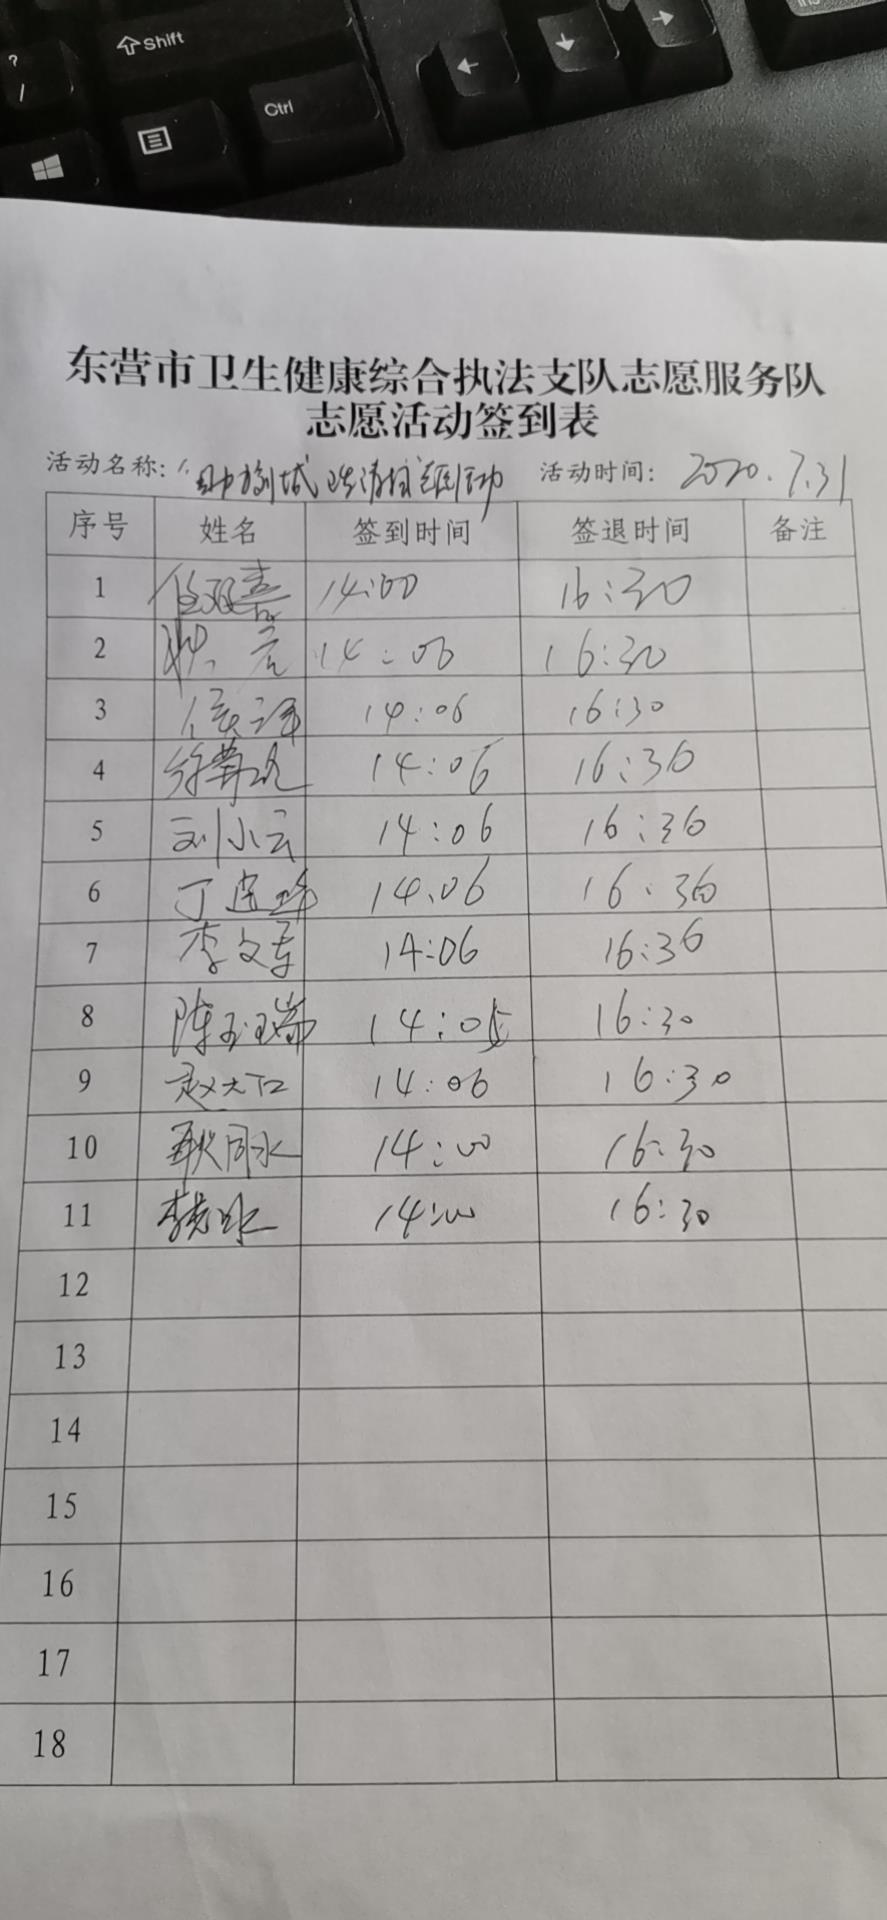 ?
/
Shift
Ctrl
Ins
东营市卫生健康综合执法支队志愿服务队
志愿活动签到表
活动名称: 活动时间: 2020.7.31
序号 姓名 签到时间 签退时间 备注
1 14:00 16:30
2 14:00 16:30
3 14:06 16:30
4 14:06 16:30
5 刘小云 14:06 16:30
6 14.06 16.30
7 李文君 14:06 16:30
8 陈玉瑞 14:05 16:30
9 赵大江 14:06 16:30
10 耿同水 14:00 16:30
11 14:00 16:30
12
13
14
15
16
17
18